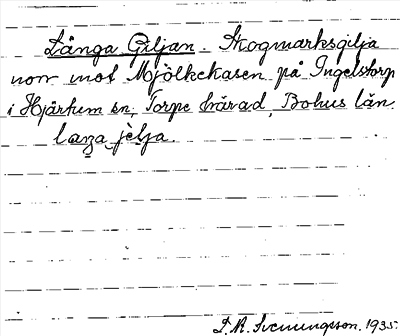 Långa Giljan. Skogmarksgilja
norr mot Mjölkekasen på Ingelstorp
i Hjärtum sn, Torpe härad, Bohus län.
laŋa jèlja.
D. A. Svenungsson. 1935.